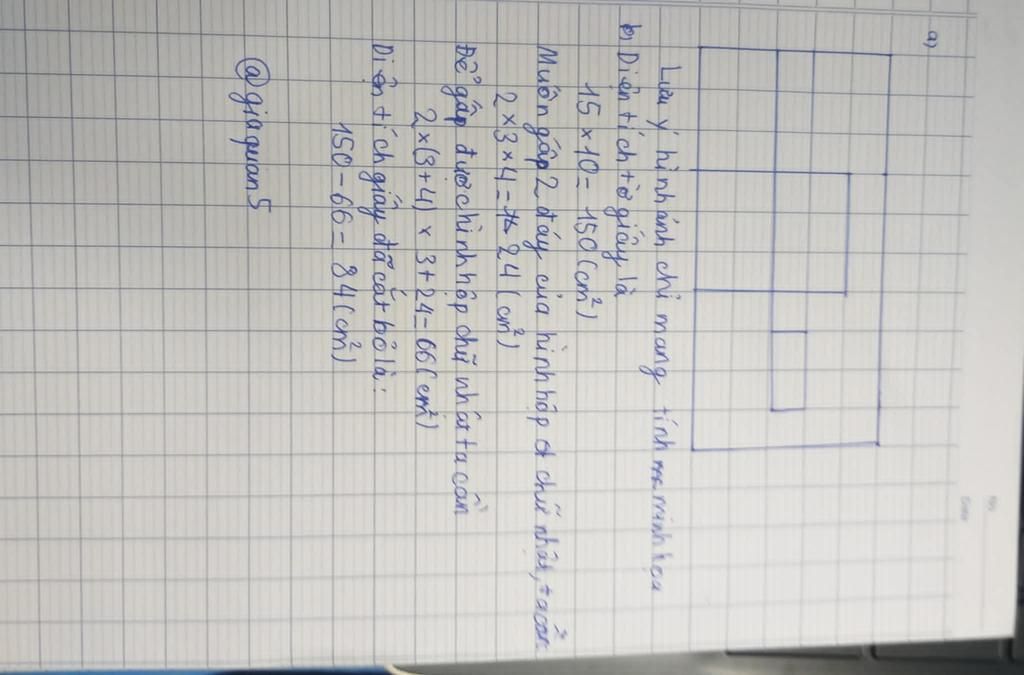 a)
Lưu ý hình ảnh chỉ mang tính minh họa
b) Diện tích tờ giấy là
15 × 10 = 150 (cm²)
Muốn gấp 2 đáy của hình hộp chữ nhật, ta cần
2 × 3 × 4 = 24 (cm²)
Để gấp được hình hộp chữ nhật ta cần
2 × (3 + 4) × 3 + 24 = 66 (cm²)
Diện tích giấy đã cắt bỏ là:
150 - 66 = 84 (cm²)
@giaquan5